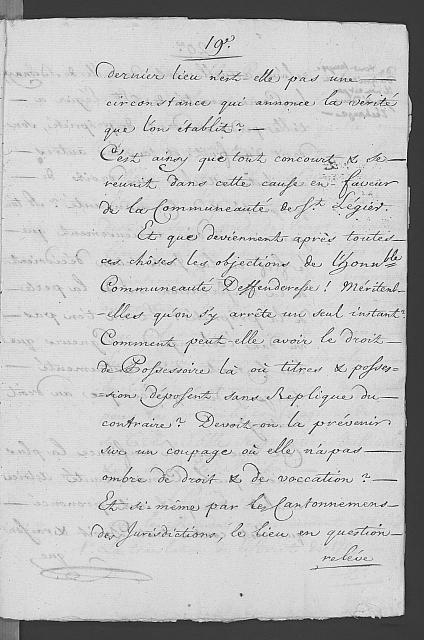 19.
dernier lieu n'est elle pas une
circonstance qui annonce la vérité
que l'on établit?
C'est ainsy que tout concourt & se
réunit dans cette cause en faveur
de la Communeauté de St. Légier.
Et que deviennent après toutes
ces chôses les objections de l'honnble
Communeauté Deffenderesse! Méritent
elles qu'on s'y arrête un seul instant?
Comment peut-elle avoir le droit
de Possessoire là où titres & posses-
sion déposent sans Replique du
contraire? Devoit-on la prévenir
sur un coupage où elle n'a pas
ombre de droit & de voccation?
Et si-même par les Cantonnemens
des Jurisdictions, le lieu en question
reléve